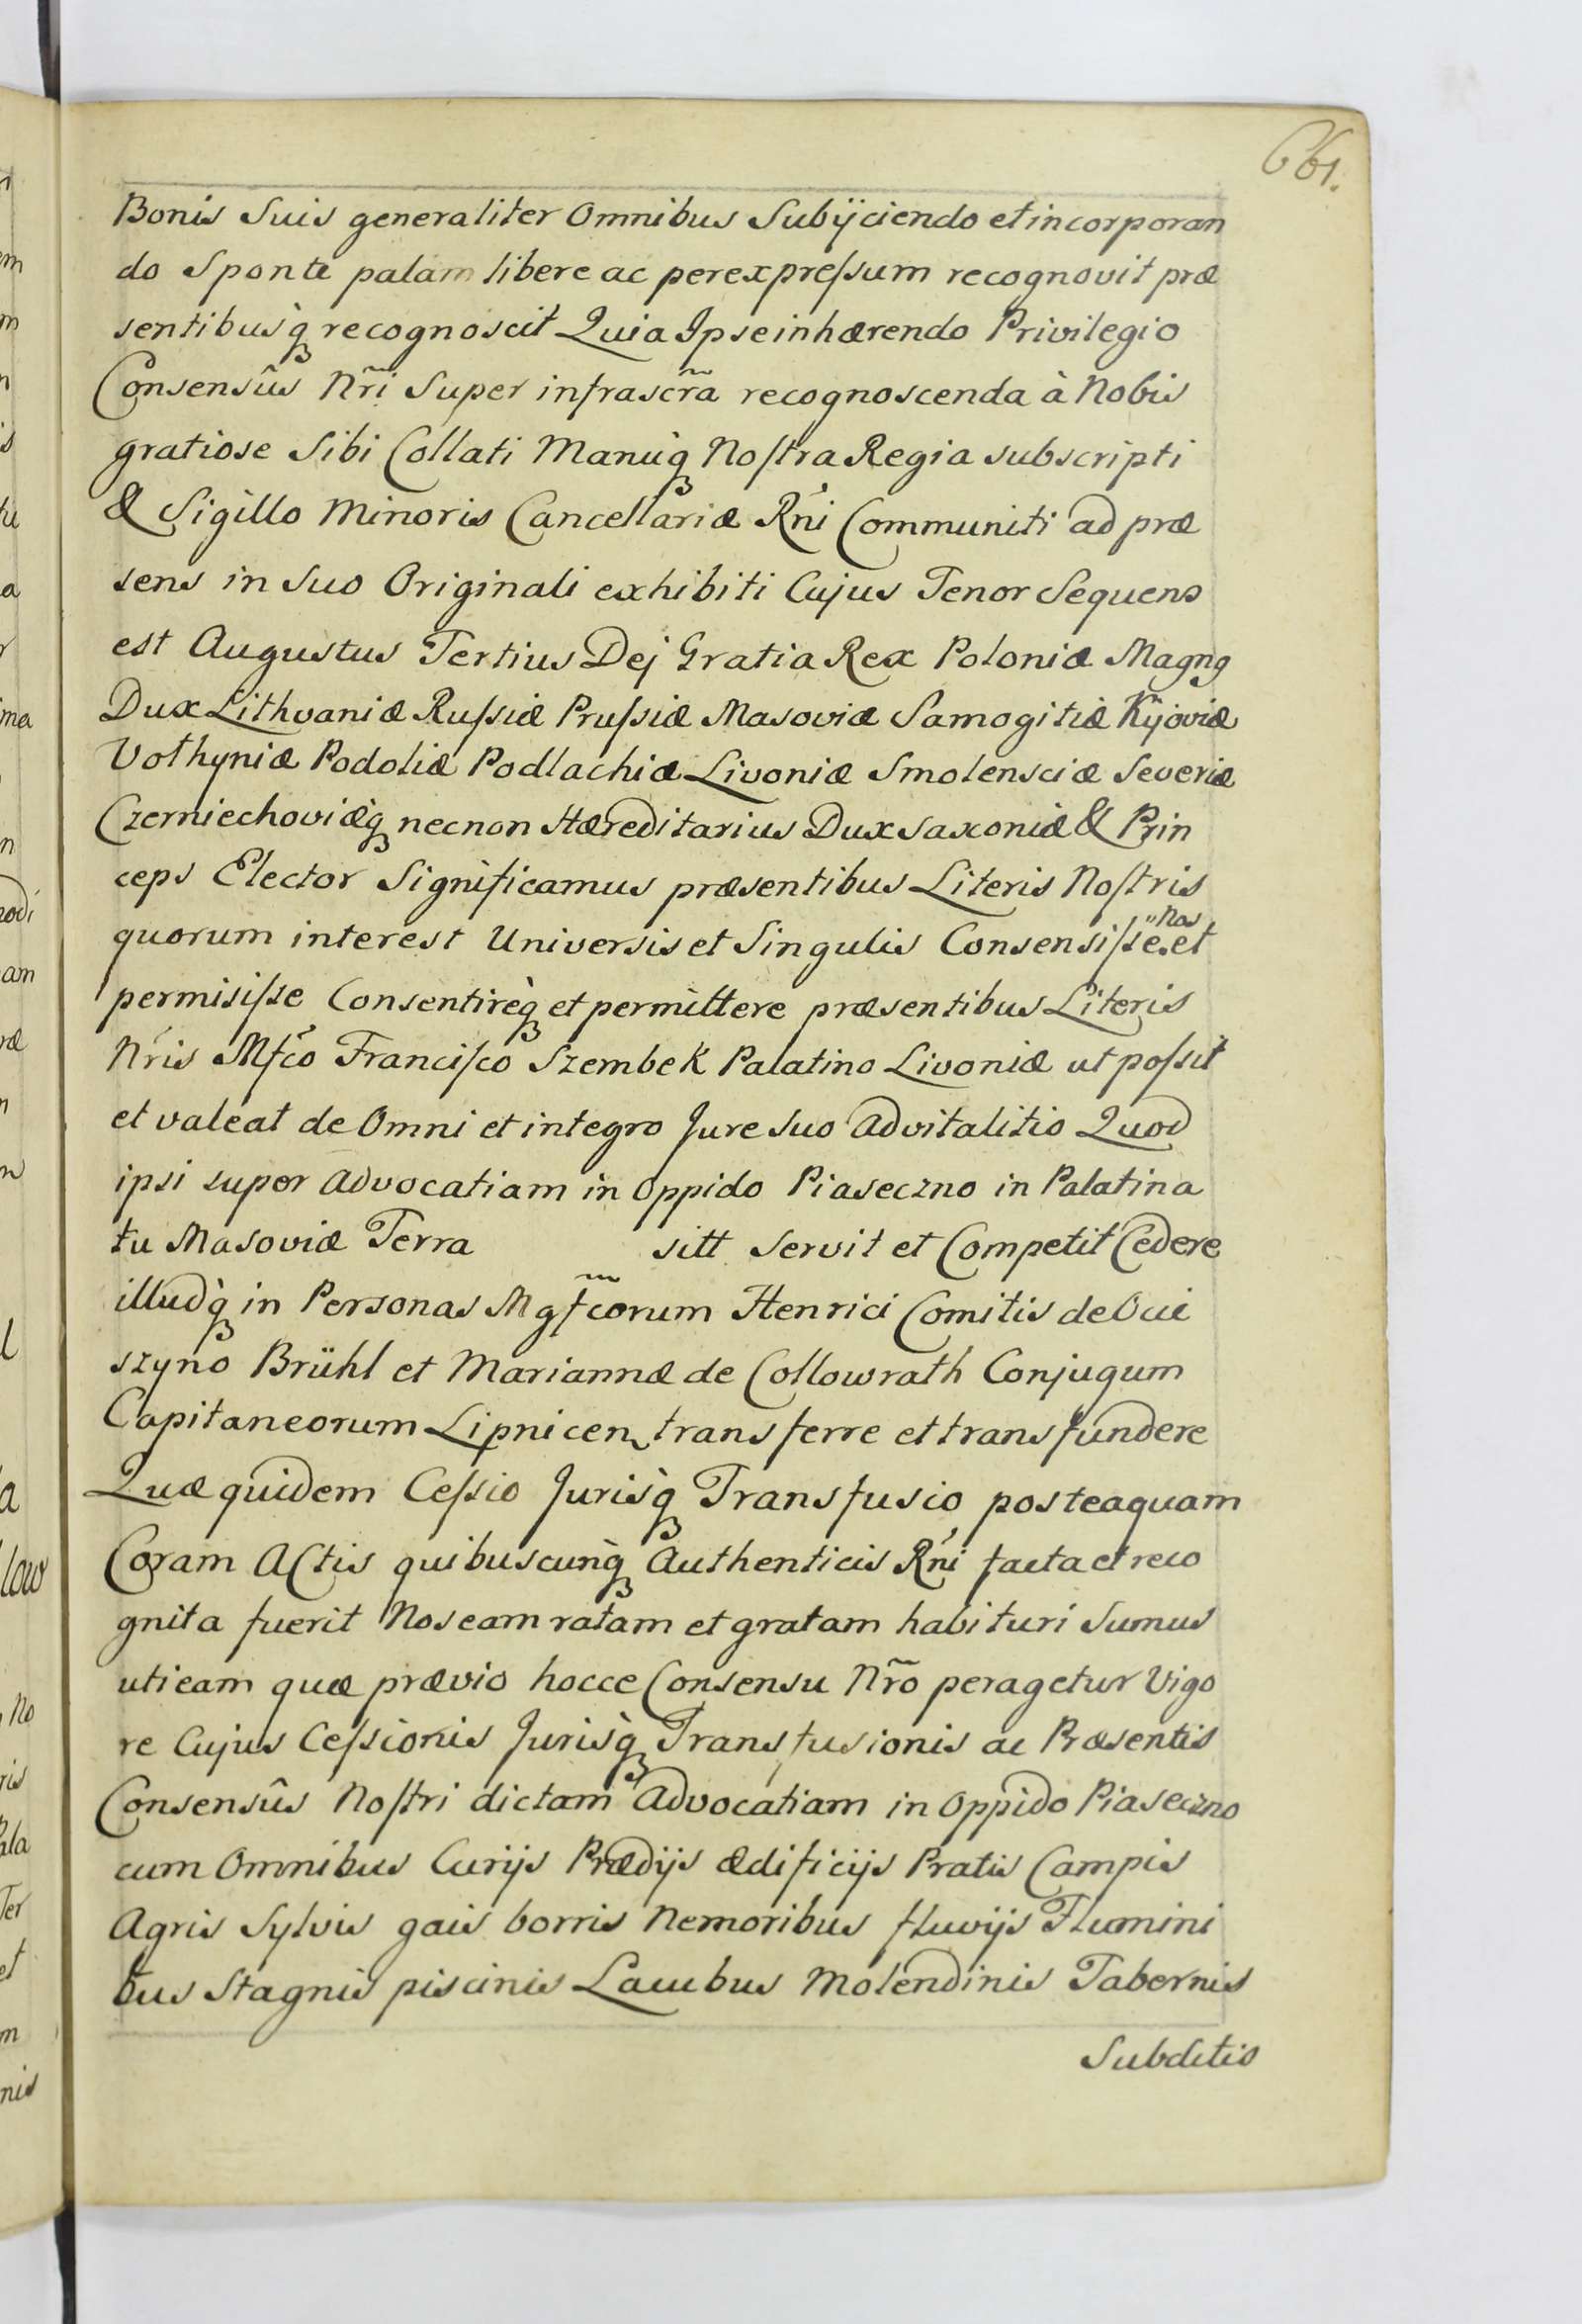 661.
Bonis Suis generaliter Omnibus Subijciendo et incorporan
do Sponte palam libere ac per expreſsum recognovit præ
sentibusq́ꝫ recognoscit Quia Ipse inhærendo Privilegio
Consensûs Nr̃i Super infrascr̃a recognoscenda à Nobis
gratiose Sibi Collati Manuq́ꝫ Noſtra Regia subscripti
& Sigillo Minoris Cancellariæ Rńi Communiti ad præ
sens in Suo Originali exhibiti Cujus Tenor Sequens
est Augustus Tertius Dej Gratia Rex Poloniæ Magnꝰ
Dux Lithvaniæ Ruſsiæ Pruſsiæ Masoviæ Samogitiæ Kijoviæ
Volhyniæ Podoliæ Podlachiæ Livoniæ Smolensciæ Severiæ
Czerniechoviæq́ꝫ necnon Hæreditarius Dux Saxoniæ & Prin
ceps Elector Significamus præsentibus Literis Noſtris
quorum interest Universis et Singulis Consensiſse Nos et
permisiſse Consentireq́ꝫ et permittere præsentibus Literis
Nŕis Mfćo Franciſco Szembek Palatino Livoniæ ut poſsit
et valeat de Omni et integro Jure Suo Advitalitio Quod
ipsi super Advocatiam in Oppido Piaseczno in Palatina
tu Masoviæ Terra sitt Servit et Competit Cedere
illudq́ꝫ in Personas Mgf̃corum Henrici Comitis de Ocie
szyno Brühl et Mariannæ de Collowrath Conjugum
Capitaneorum Lipnicen transferre et transfundere
Quæ quidem Ceſsio Jurisq́ꝫ Transfusio posteaquam
Coram Actis quibuscunq́ꝫ Authenticis Rńi facta et reco
gnita fuerit Nos eam ratam et gratam habituri Sumus
uti eam quæ prævio hocce Consensu Nr̃o peragetur Vigo
re Cujus Ceſsionis Jurisq́ꝫ Transfusionis ac Præsentis
Consensûs Noſtri dictam Advocatiam in Oppido Piaseczno
cum Omnibus Curijs Prædijs ædificijs Pratis Campis
Agris Sylvis gais borris Nemoribus fluvijs Flumini
bus Stagnis piscinis Lacubus Molendinis Tabernis
Subditis